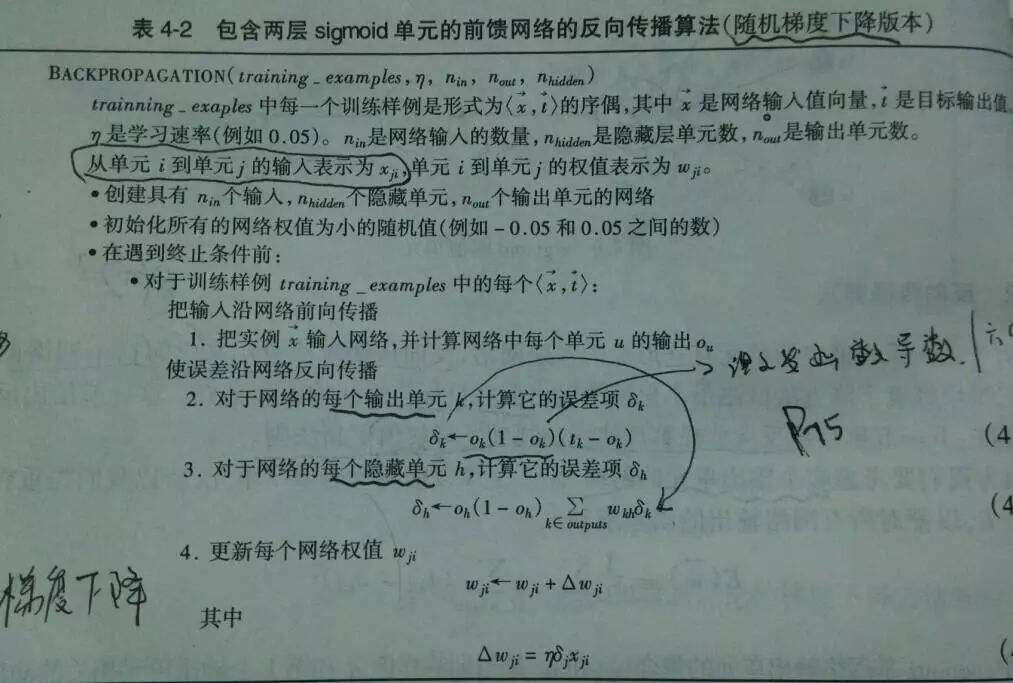 表 4-2 包含两层 sigmoid 单元的前馈网络的反向传播算法(随机梯度下降版本)
BACKPROPAGATION(training_examples, η, n_in, n_out, n_hidden)
trainning_exaples 中每一个训练样例是形式为⟨x⃗, t⃗⟩的序偶,其中 x⃗ 是网络输入值向量, t⃗ 是目标输出值
η 是学习速率(例如 0.05)。n_in是网络输入的数量, n_hidden是隐藏层单元数, n_out是输出单元数。
从单元 i 到单元 j 的输入表示为 x_ji,单元 i 到单元 j 的权值表示为 w_ji。
•创建具有 n_in个输入, n_hidden个隐藏单元, n_out个输出单元的网络
•初始化所有的网络权值为小的随机值(例如 -0.05 和 0.05 之间的数)
•在遇到终止条件前:
•对于训练样例 training_examples 中的每个⟨x⃗, t⃗⟩:
把输入沿网络前向传播
1. 把实例 x⃗ 输入网络,并计算网络中每个单元 u 的输出 o_u
使误差沿网络反向传播
2. 对于网络的每个输出单元 k,计算它的误差项 δ_k
δ_k←o_k(1-o_k)(t_k-o_k)
(4
3. 对于网络的每个隐藏单元 h,计算它的误差项 δ_h
δ_h←o_h(1-o_h) ∑_{k∈outputs} w_kh δ_k
(4
4. 更新每个网络权值 w_ji
w_ji←w_ji+Δw_ji
其中
Δw_ji=ηδ_j x_ji
(4
导数
P75
梯度下降